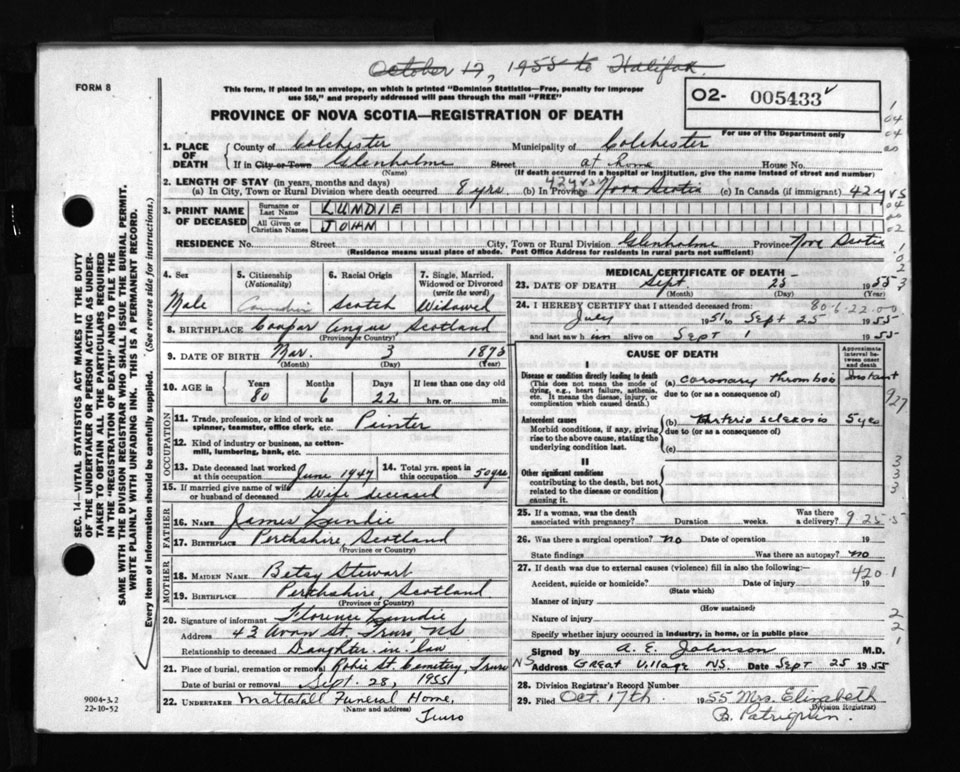 October 17, 1955 to Halifax.
FORM 8
This form, if placed in an envelope, on which is printed "Dominion Statistics—Free, penalty for improper
use $50," and properly addressed will pass through the mail "FREE"
O2- 005433
For use of the Department only
PROVINCE OF NOVA SCOTIA—REGISTRATION OF DEATH
1. PLACE OF DEATH
County of Colchester Municipality of Colchester
If in City or Town Glenholme Street at Home House No.
(Name) (If death occurred in a hospital or institution, give the name instead of street and number)
2. LENGTH OF STAY (in years, months and days)
(a) In City, Town or Rural Division where death occurred 8 yrs. (b) In Province 42 yrs Nova Scotia (c) In Canada (if immigrant) 42 yrs
3. PRINT NAME OF DECEASED
Surname or Last Name LUNDIE
All Given or Christian Names JOHN
RESIDENCE No. Street City, Town or Rural Division Glenholme Province Nova Scotia
(Residence means usual place of abode. Post Office Address for residents in rural parts not sufficient)
4. Sex Male
5. Citizenship (Nationality) Canadian
6. Racial Origin Scotch
7. Single, Married, Widowed or Divorced (write the word) Widowed
8. BIRTHPLACE Coupar Angus, Scotland
(Province or Country)
9. DATE OF BIRTH Mar. 3 1875
(Month) (Day) (Year)
10. AGE in Years 80 Months 6 Days 22 If less than one day old
hrs. or min.
OCCUPATION
11. Trade, profession, or kind of work as spinner, teamster, office clerk, etc. Printer
12. Kind of industry or business, as cotton-mill, lumbering, bank, etc.
13. Date deceased last worked at this occupation June 1947
14. Total yrs. spent in this occupation 50 yrs
15. If married give name of wife or husband of deceased Wife deceased
FATHER
16. NAME James Lundie
17. BIRTHPLACE Perthshire, Scotland
(Province or Country)
MOTHER
18. MAIDEN NAME Betsy Stewart
19. BIRTHPLACE Perthshire, Scotland
(Province or Country)
20. Signature of informant Florence Lundie
Address 43 Avon St. Truro NS
Relationship to deceased Daughter-in-law
21. Place of burial, cremation or removal Robie St. Cemetery, Truro NS
Date of burial or removal Sept. 28, 1955
22. UNDERTAKER Mattatall Funeral Home,
(Name and address)
Truro
MEDICAL CERTIFICATE OF DEATH
23. DATE OF DEATH Sept. 25 1955
(Month) (Day)
24. I HEREBY CERTIFY that I attended deceased from: 80-6-22-00
July 1951 to Sept 25 1955
and last saw him alive on Sept 1 1955
CAUSE OF DEATH
Approximate interval between onset and death
I
Disease or condition directly leading to death (This does not mean the mode of dying, e.g., heart failure, asthenia, etc. It means the disease, injury, or complication which caused death.)
(a) coronary thrombosis Instant
due to (or as a consequence of)
Antecedent causes
Morbid conditions, if any, giving rise to the above cause, stating the underlying condition last.
(b) Arterio sclerosis 5 yrs
due to (or as a consequence of)
(c)
II
Other significant conditions contributing to the death, but not related to the disease or condition causing it.
25. If a woman, was the death associated with pregnancy? Duration weeks. Was there a delivery?
925-5
26. Was there a surgical operation? no Date of operation 19
State findings Was there an autopsy? no
27. If death was due to external causes (violence) fill in also the following:— 420.1
Accident, suicide or homicide? Date of injury 19
(State which)
Manner of injury
(How sustained)
Nature of injury
Specify whether injury occurred in industry, in home, or in public place
Signed by A. E. Johnson M.D.
Address Great Village NS. Date Sept 25 1955
28. Division Registrar's Record Number
29. Filed Oct. 17th. 1955 Mrs. Elizabeth
(Division Registrar)
B. Patriquin.
SEC. 14—VITAL STATISTICS ACT MAKES IT THE DUTY
OF THE UNDERTAKER OR PERSON ACTING AS UNDER-
TAKER TO OBTAIN ALL THE PARTICULARS REQUIRED
IN THE "REGISTRATION OF DEATH" AND TO FILE THE
SAME WITH THE DIVISION REGISTRAR WHO SHALL ISSUE THE BURIAL PERMIT.
WRITE PLAINLY WITH UNFADING INK. THIS IS A PERMANENT RECORD.
Every item of information should be carefully supplied. (See reverse side for instructions.)
9004-3.2
22-10-52